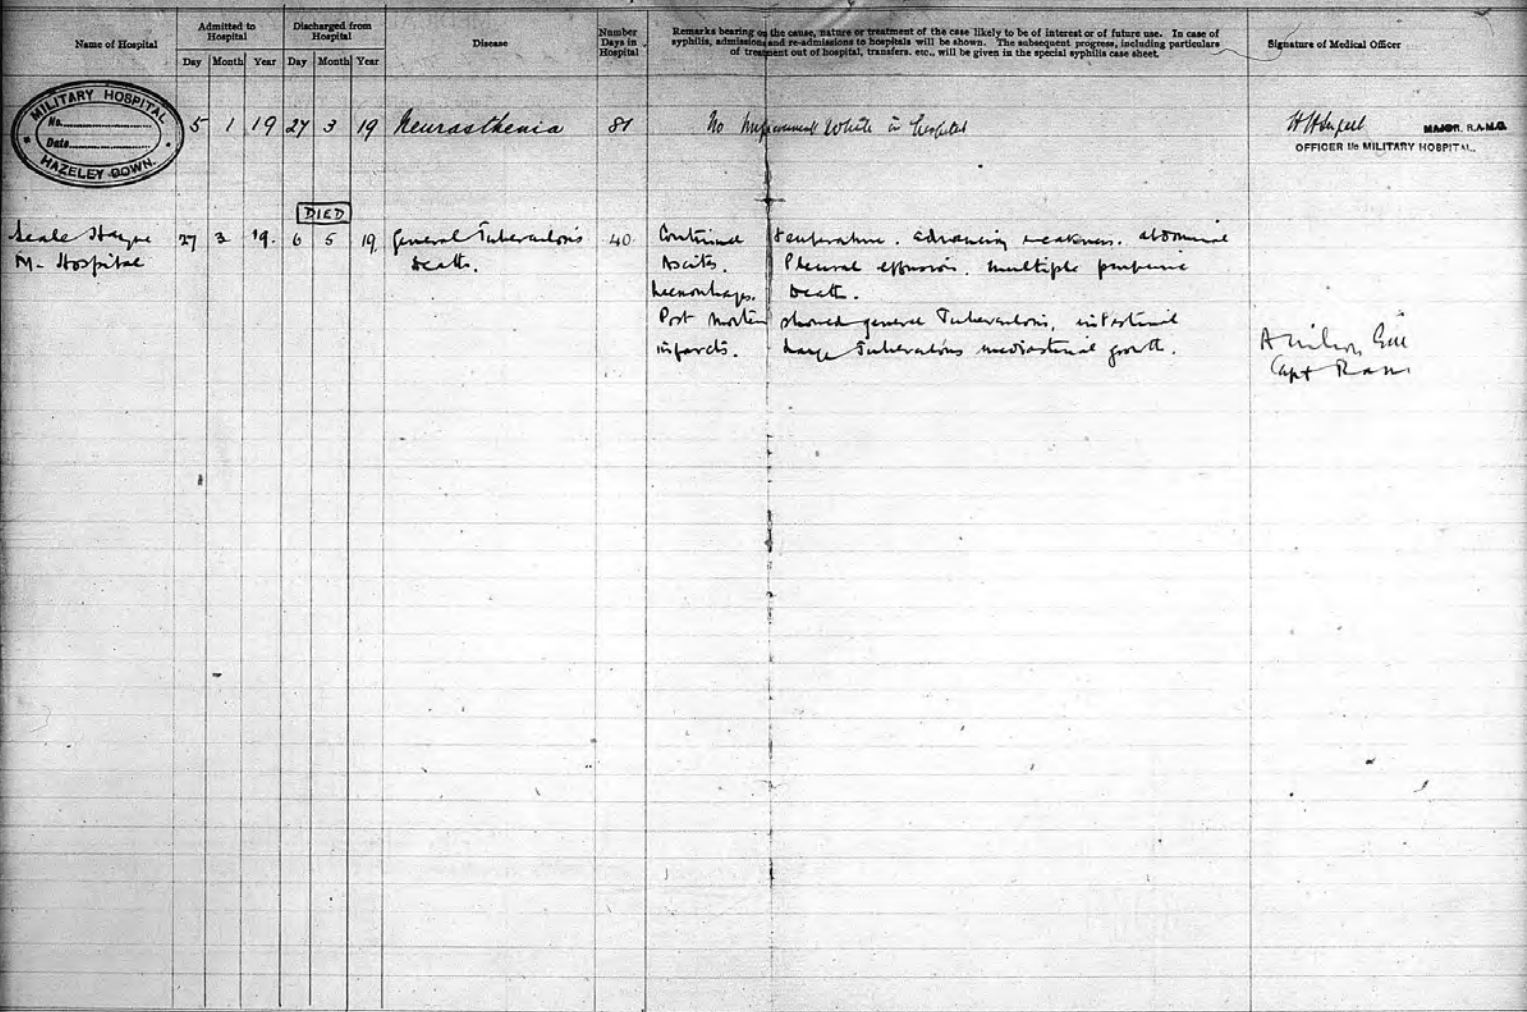 Name of Hospital
Admitted to Hospital
Discharged from Hospital
Disease
Number Days in Hospital
Remarks bearing on the cause, nature or treatment of the case likely to be of interest or of future use. In case of
syphilis, admissions and re-admissions to hospitals will be shown. The subsequent progress, including particulars
of treatment out of hospital, transfers, etc., will be given in the special syphilis case sheet.
Signature of Medical Officer
Day Month Year Day Month Year
MILITARY HOSPITAL
No.
Date
HAZELEY DOWN.
5 1 19 27 3 19 Neurasthenia 81 No improvement while in hospital
MAJOR. R.A.M.C.
OFFICER I/c MILITARY HOSPITAL.
DIED
Seale Hayne 27 3 19. 6 5 19 General Tuberculosis 40. Continued temperature. advancing weakness. abdominal
M. Hospital Death. Ascites. Pleural effusion. multiple purpuric
haemorrhages. Death.
Post Mortem showed general Tuberculosis, intestinal
infarcts. Large Tuberculous mediastinal growth.
Capt RAMC